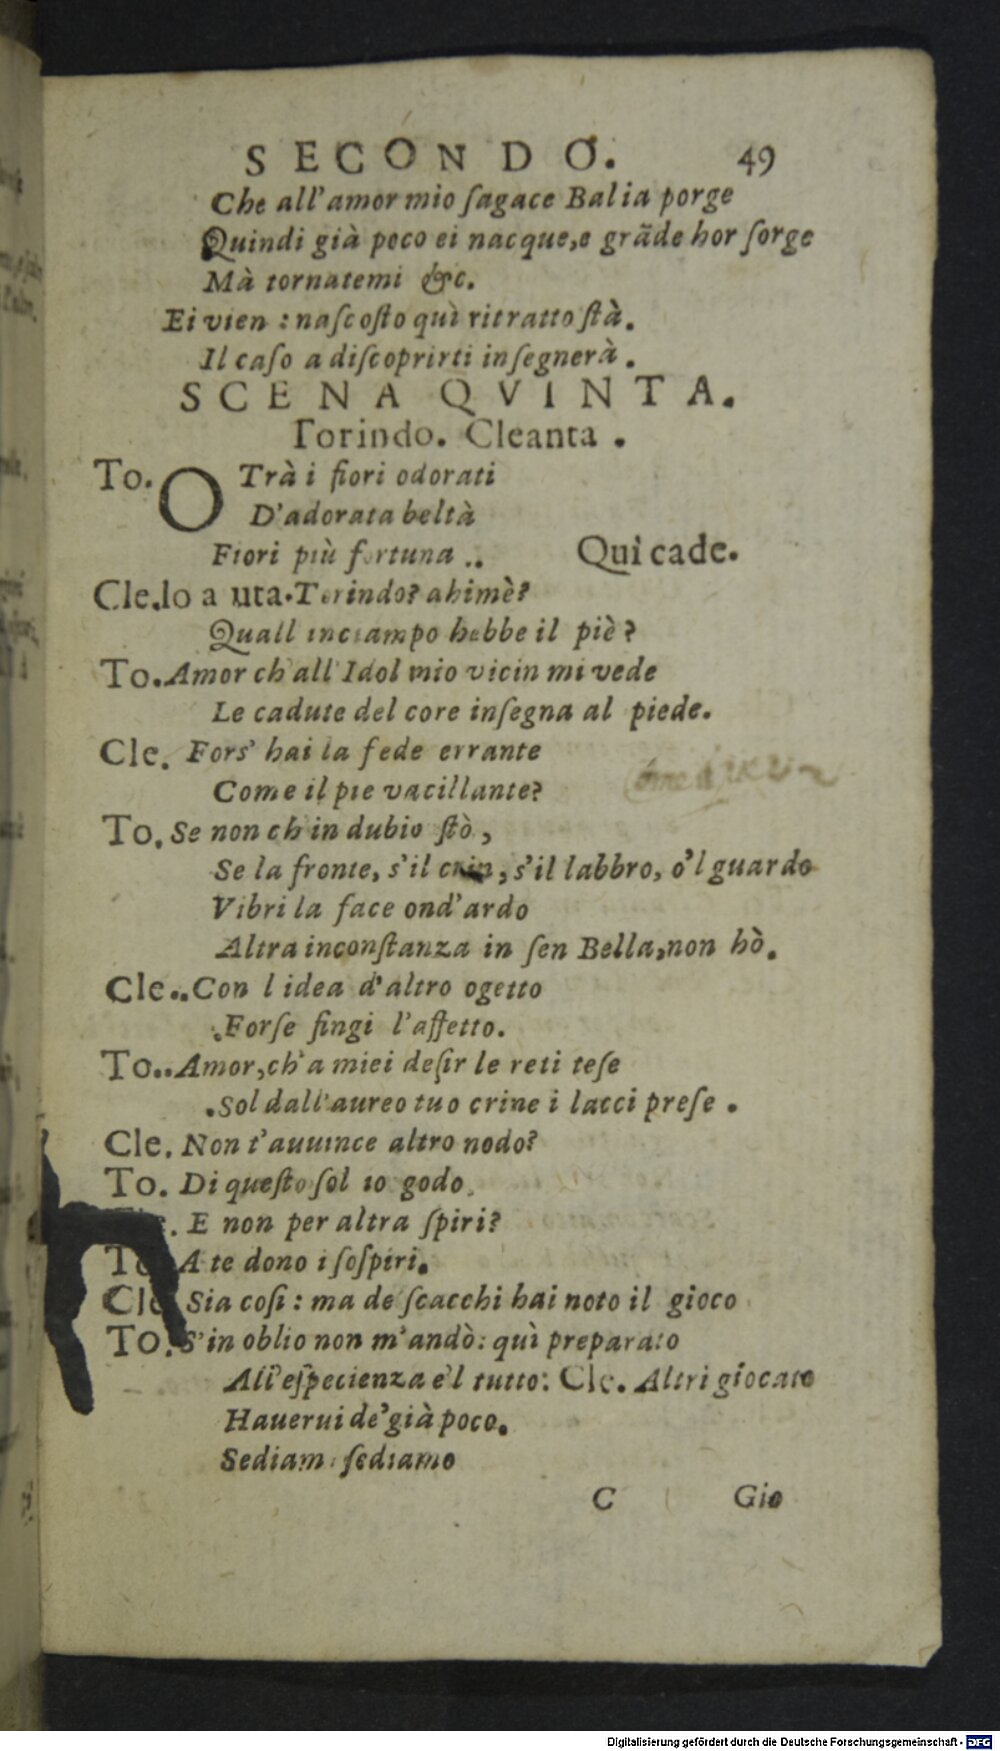 SECONDO. 49
Che all'amor mio ſagace Balia porge
Quindi già poco ei nacque,e grãde hor ſorge
Mà tornatemi &c.
Ei vien : naſcoſto quì ritratto ſtà.
Il caſo a diſcoprirti inſegnerà.
SCENA QVINTA.
Torindo. Cleanta .
To. O Trà i fiori odorati
D'adorata beltà
Fiori più fortuna .. Qui cade.
Cle.lo a uta.Torindo? ahimè?
Quall inciampo hebbe il piè?
To. Amor ch'all'Idol mio vicin mi vede
Le cadute del core inſegna al piede.
Cle. Fors' hai la fede errante
Come il pie vacillante?
To. Se non ch in dubio ſtò ,
Se la fronte, s'il crin, s'il labbro, o'l guardo
Vibri la face ond'ardo
Altra inconſtanza in ſen Bella,non hò.
Cle.. Con l idea d'altro ogetto
.Forſe fingi l'affetto.
To.. Amor,ch'a miei deſir le reti teſe
.Sol dall'aureo tuo crine i lacci preſe .
Cle. Non t'auuince altro nodo?
To. Di queſto ſol io godo.
Cle. E non per altra ſpiri?
To. A te dono i ſoſpiri.
Cle. Sia coſi : ma de ſcacchi hai noto il gioco
To. S'in oblio non m'andò: quì preparato
All'eſpecienza e'l tutto: Cle. Altri giocato
Hauerui de'già poco.
Sediam ſediamo
C Gio
Digitalisierung gefördert durch die Deutsche Forschungsgemeinschaft - DFG